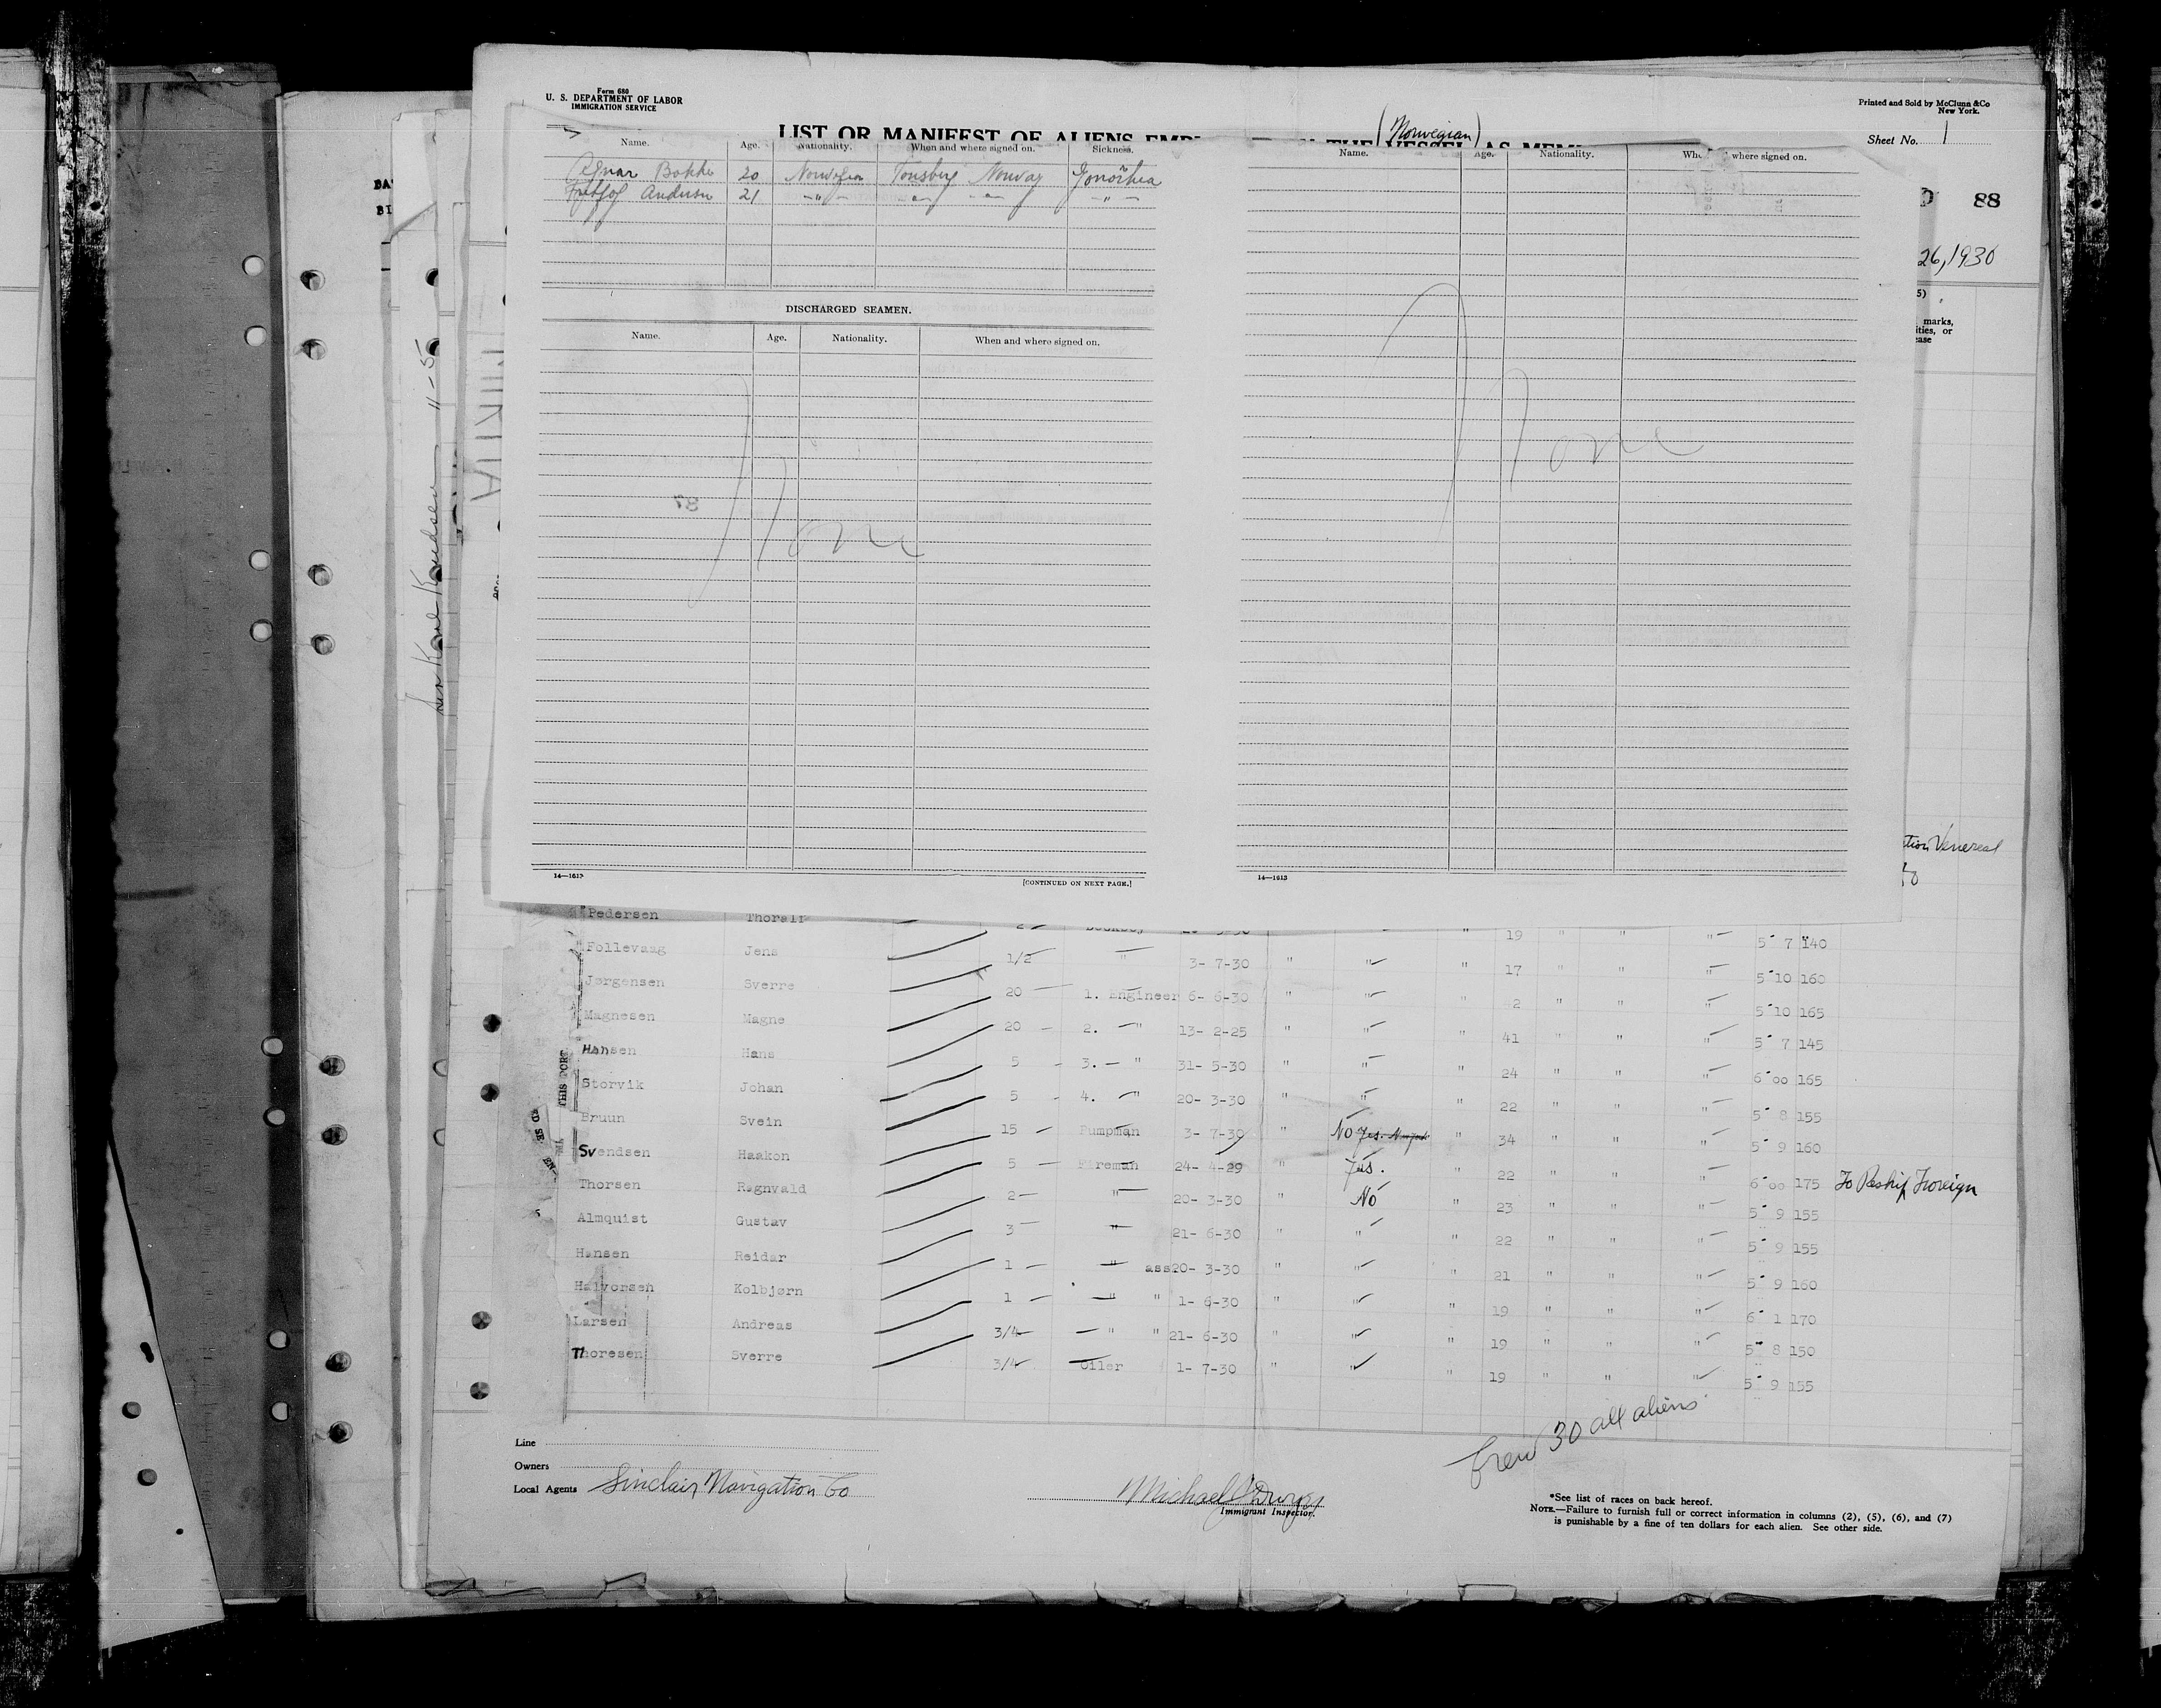 Form 680
U. S. DEPARTMENT OF LABOR
IMMIGRATION SERVICE
Printed and Sold by McClunn &Co
New York.
Sheet No. 1
LIST OR MANIFEST OF ALIENS
(Norwegian)
THE VESSEL AS
88
26, 1930
Name. Age. Nationality. When and where signed on. Sickness.
20 Norwegian Tonsberg Norway
21 -"-
DISCHARGED SEAMEN.
Name. Age. Nationality. When and where signed on.
None
14—1613
[CONTINUED ON NEXT PAGE.]
Name. Age. Nationality. where signed on.
None
14—1613
5)
marks,
Venereal
Knudsen 11-5
Pedersen Thoralf
Follevaag Jens 1/2 " 3- 7-30 " " " 17 " " " 5 10 160
Jørgensen Sverre 20 1. Engineer 6- 6-30 " " " 42 " " " 5 10 165
Magnesen Magne 20 2. " 13- 2-25 " " " 41 " " " 5 7 145
Hansen Hans 5 3. " 31- 5-30 " " " 24 " " " 6 00 165
Storvik Johan 5 4. " 20- 3-30 " " " 22 " " " 5 8 155
Bruun Svein 15 Pumpman 3- 7-30 " No " 34 " " " 5 9 160
Svendsen Haakon 5 Fireman 24- 4-29 " Yes. " 22 " " " 6 00 175 To Reship Foreign
Thorsen Ragnvald 2 " 20- 3-30 " No " 23 " " " 5 9 155
Almquist Gustav 3 " 21- 6-30 " " " 22 " " " 5 9 155
Hansen Reidar 1 " ass 20- 3-30 " " " 21 " " " 5 9 160
Halvorsen Kolbjørn 1 " " 1- 6-30 " " " 19 " " " 6 1 170
Larsen Andreas 3/4 " " 21- 6-30 " " " 19 " " " 5 8 150
Thoresen Sverre 3/4 Oiler 1- 7-30 " " " 19 " " " 5 9 155
Crew 30 all aliens
Line
Owners
Local Agents Sinclair Navigation Co
Michael
Immigrant Inspector.
*See list of races on back hereof.
NOTE.—Failure to furnish full or correct information in columns (2), (5), (6), and (7)
is punishable by a fine of ten dollars for each alien. See other side.